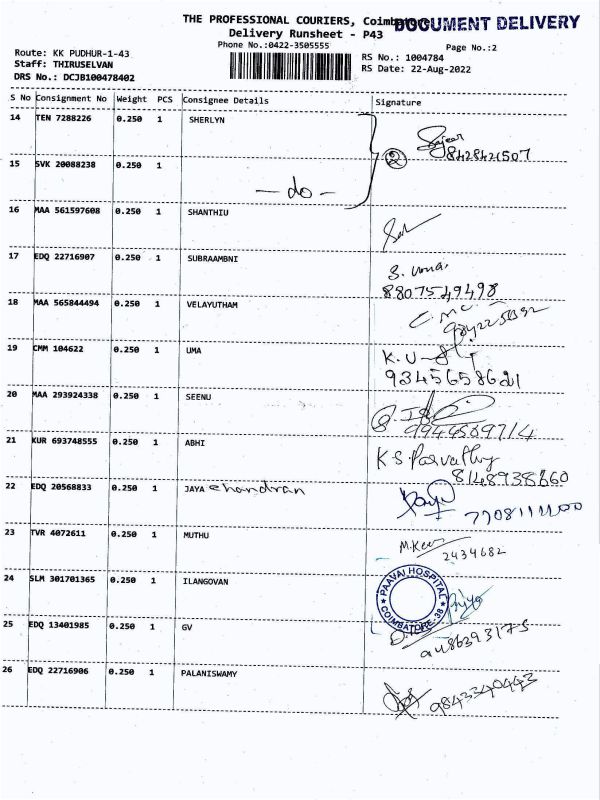 THE PROFESSIONAL COURIERS, Coimbatore
DOCUMENT DELIVERY
Delivery Runsheet - P43
Phone No.:0422-3505555
Page No.:2
Route: KK PUDHUR-1-43
Staff: THIRUSELVAN
DRS No.: DCJB100478402
RS No.: 1004784
RS Date: 22-Aug-2022
S No Consignment No Weight PCS Consignee Details Signature
14 TEN 7288226 0.250 1 SHERLYN
2
15 SVK 20088238 0.250 1
- do -
16 MAA 561597608 0.250 1 SHANTHIU
17 EDQ 22716907 0.250 1 SUBRAAMBNI
S. Uma.
8807549498
18 MAA 565844494 0.250 1 VELAYUTHAM
19 CMM 104622 0.250 1 UMA
K. U
9345658621
20 MAA 293924338 0.250 1 SEENU
21 KUR 693748555 0.250 1 ABHI
K S. Parvathy
8148938660
22 EDQ 20568833 0.250 1 JAYA chandran
23 TVR 4072611 0.250 1 MUTHU
2434682
24 SLM 301701365 0.250 1 ILANGOVAN
PAAVAI HOSPITAL
COIMBATORE-38
25 EDQ 13401985 0.250 1 GV
26 EDQ 22716906 0.250 1 PALANISWAMY
9843340443